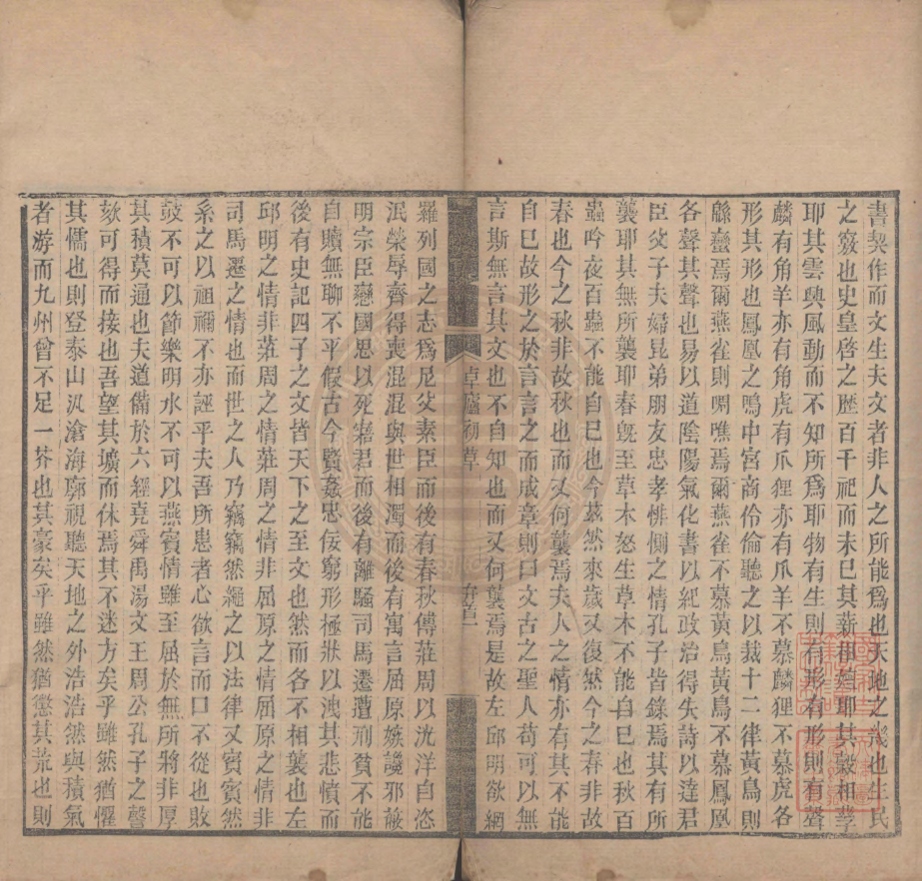 書契作而文生夫文者非人之所能爲也天地之幾也生民
之竅也史皇啓之歷百千祀而未巳其薪相耶其瞉相孳
耶其雲興風動而不知所爲耶物有生則有形有形則有聲
麟有角羊亦有角虎有爪狸亦有爪羊不慕麟狸不慕虎各
形其形也鳳凰之鳴中宮商伶倫聽之以裁十二律黃鳥則
緜蠻焉爾燕雀則啁噍焉爾燕雀不慕黃鳥黃鳥不慕鳳凰
各聲其聲也易以道陰陽氣化書以紀政治得失詩以達君
臣父子夫婦昆弟朋友忠孝悱惻之情孔子皆錄焉其有所
襲耶其無所襲耶春旣至草木怒生草木不能自巳也秋百
蟲吟夜百蟲不能自巳也今茲然來歲又復然今之春非故
春也今之秋非故秋也而又何襲焉夫人之情亦有其不能
自巳故形之於言言之而成章則曰文古之聖人苟可以無
言斯無言其文也不自知也而又何襲焉是故左邱明欲網
草廬初草 弁首一
羅列國之志爲尼父素臣而後有春秋傳莊周以洸洋自恣
泯榮辱齊得喪混混與世相濁而後有寓言屈原嫉讒邪蔽
明宗臣戀國思以死寤君而後有離騷司馬遷遭刑貧不能
自贖無聊不平假古今賢姦忠佞窮形極狀以洩其悲憤而
後有史記四子之文皆天下之至文也然而各不相襲也左
邱明之情非莊周之情莊周之情非屈原之情屈原之情非
司馬遷之情也而世之人乃竊竊然繩之以法律又賓賓然
系之以祖禰不亦誣乎夫吾所患者心欲言而口不從也敗
鼓不可以節樂明水不可以燕賓情雖至屈於無所將非厚
其積莫通也夫道備於六經堯舜禹湯文王周公孔子之謦
欬可得而接也吾望其壙而休焉其不迷方矣乎雖然猶懼
其懦也則登泰山汎滄海廓視聽天地之外浩浩然與積氣
者游而九州曾不足一芥也其豪矣乎雖然猶懲其荒也則